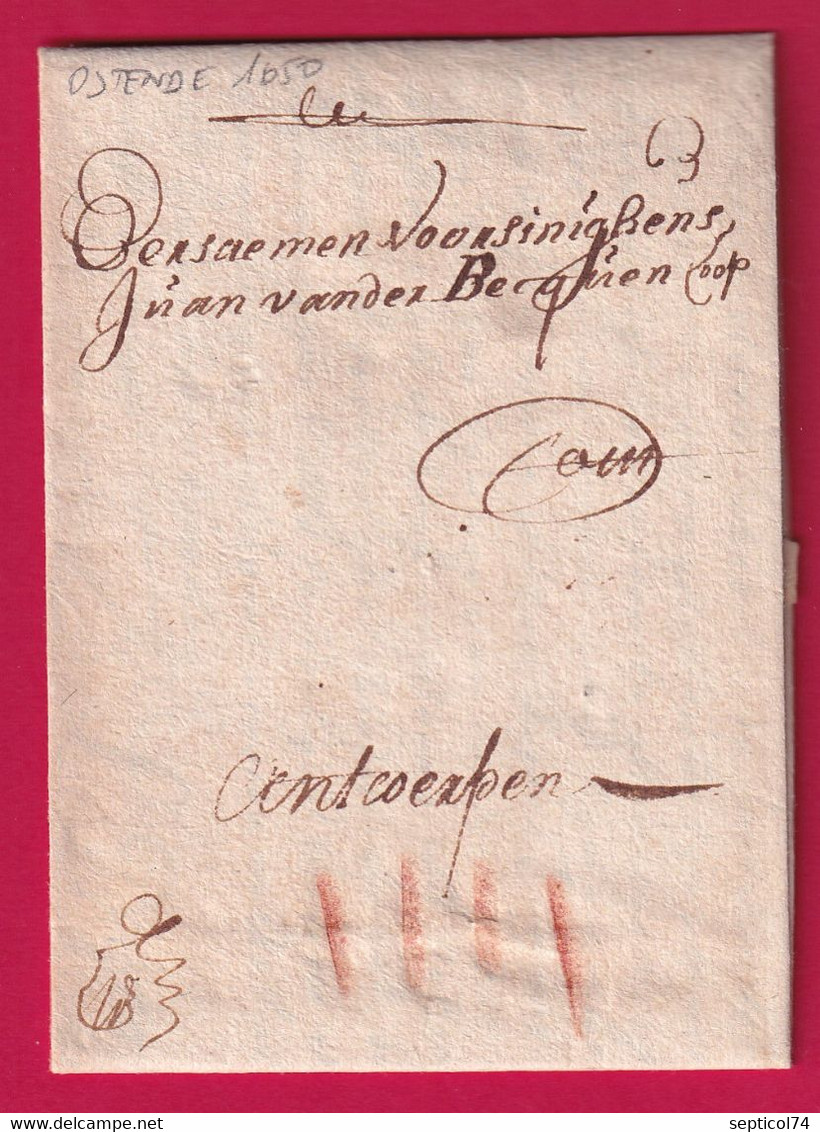 OSTENDE 1650
Eersaemen Voorsinighens,
Juan vander Becquen Coop
Antwerpen
www.delcampe.net
septicol74